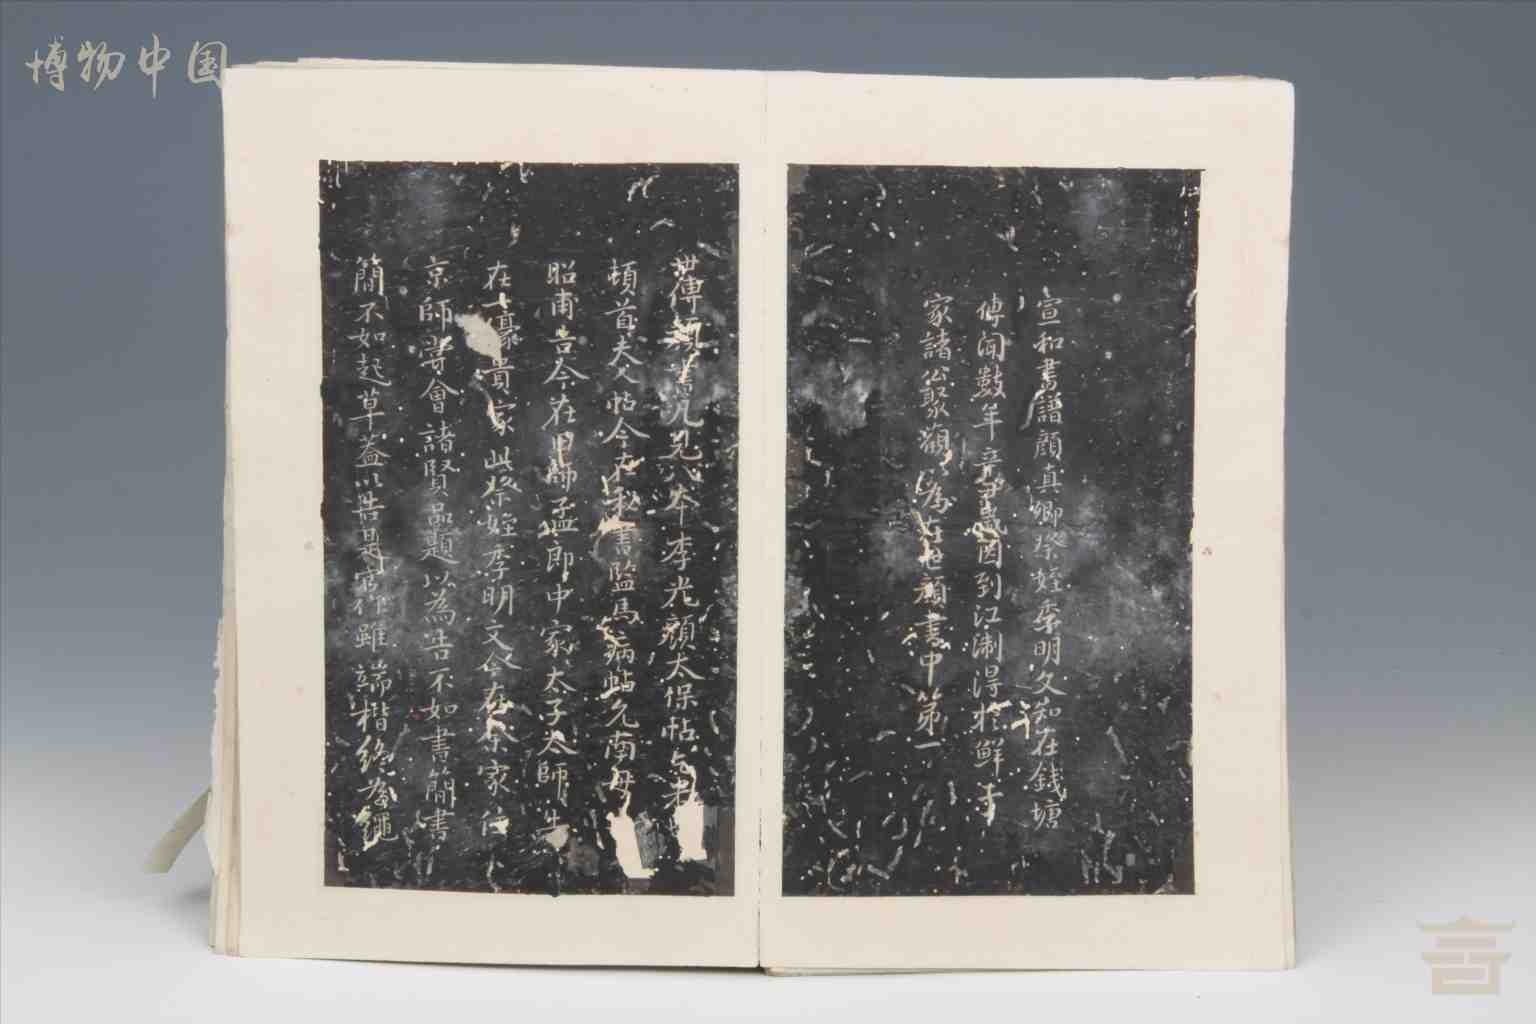 博物中国
宣和書譜顏真卿祭姪季明文知在錢塘
傳聞數年辛巳歲因到江淛得扵鮮于
家諸公聚觀以為在世顏書中第一
世傳顏書凡見八本李光顏太保帖与夫
頓首夫人帖今在秘書監馬病帖允南母
昭甫告今在田師孟郎中家太子太師告
在一豪貴家此祭姪季明文今在余家
京師嘗會諸賢品題以為告不如書簡書
簡不如起草盖以告是官作雖端楷終為繩